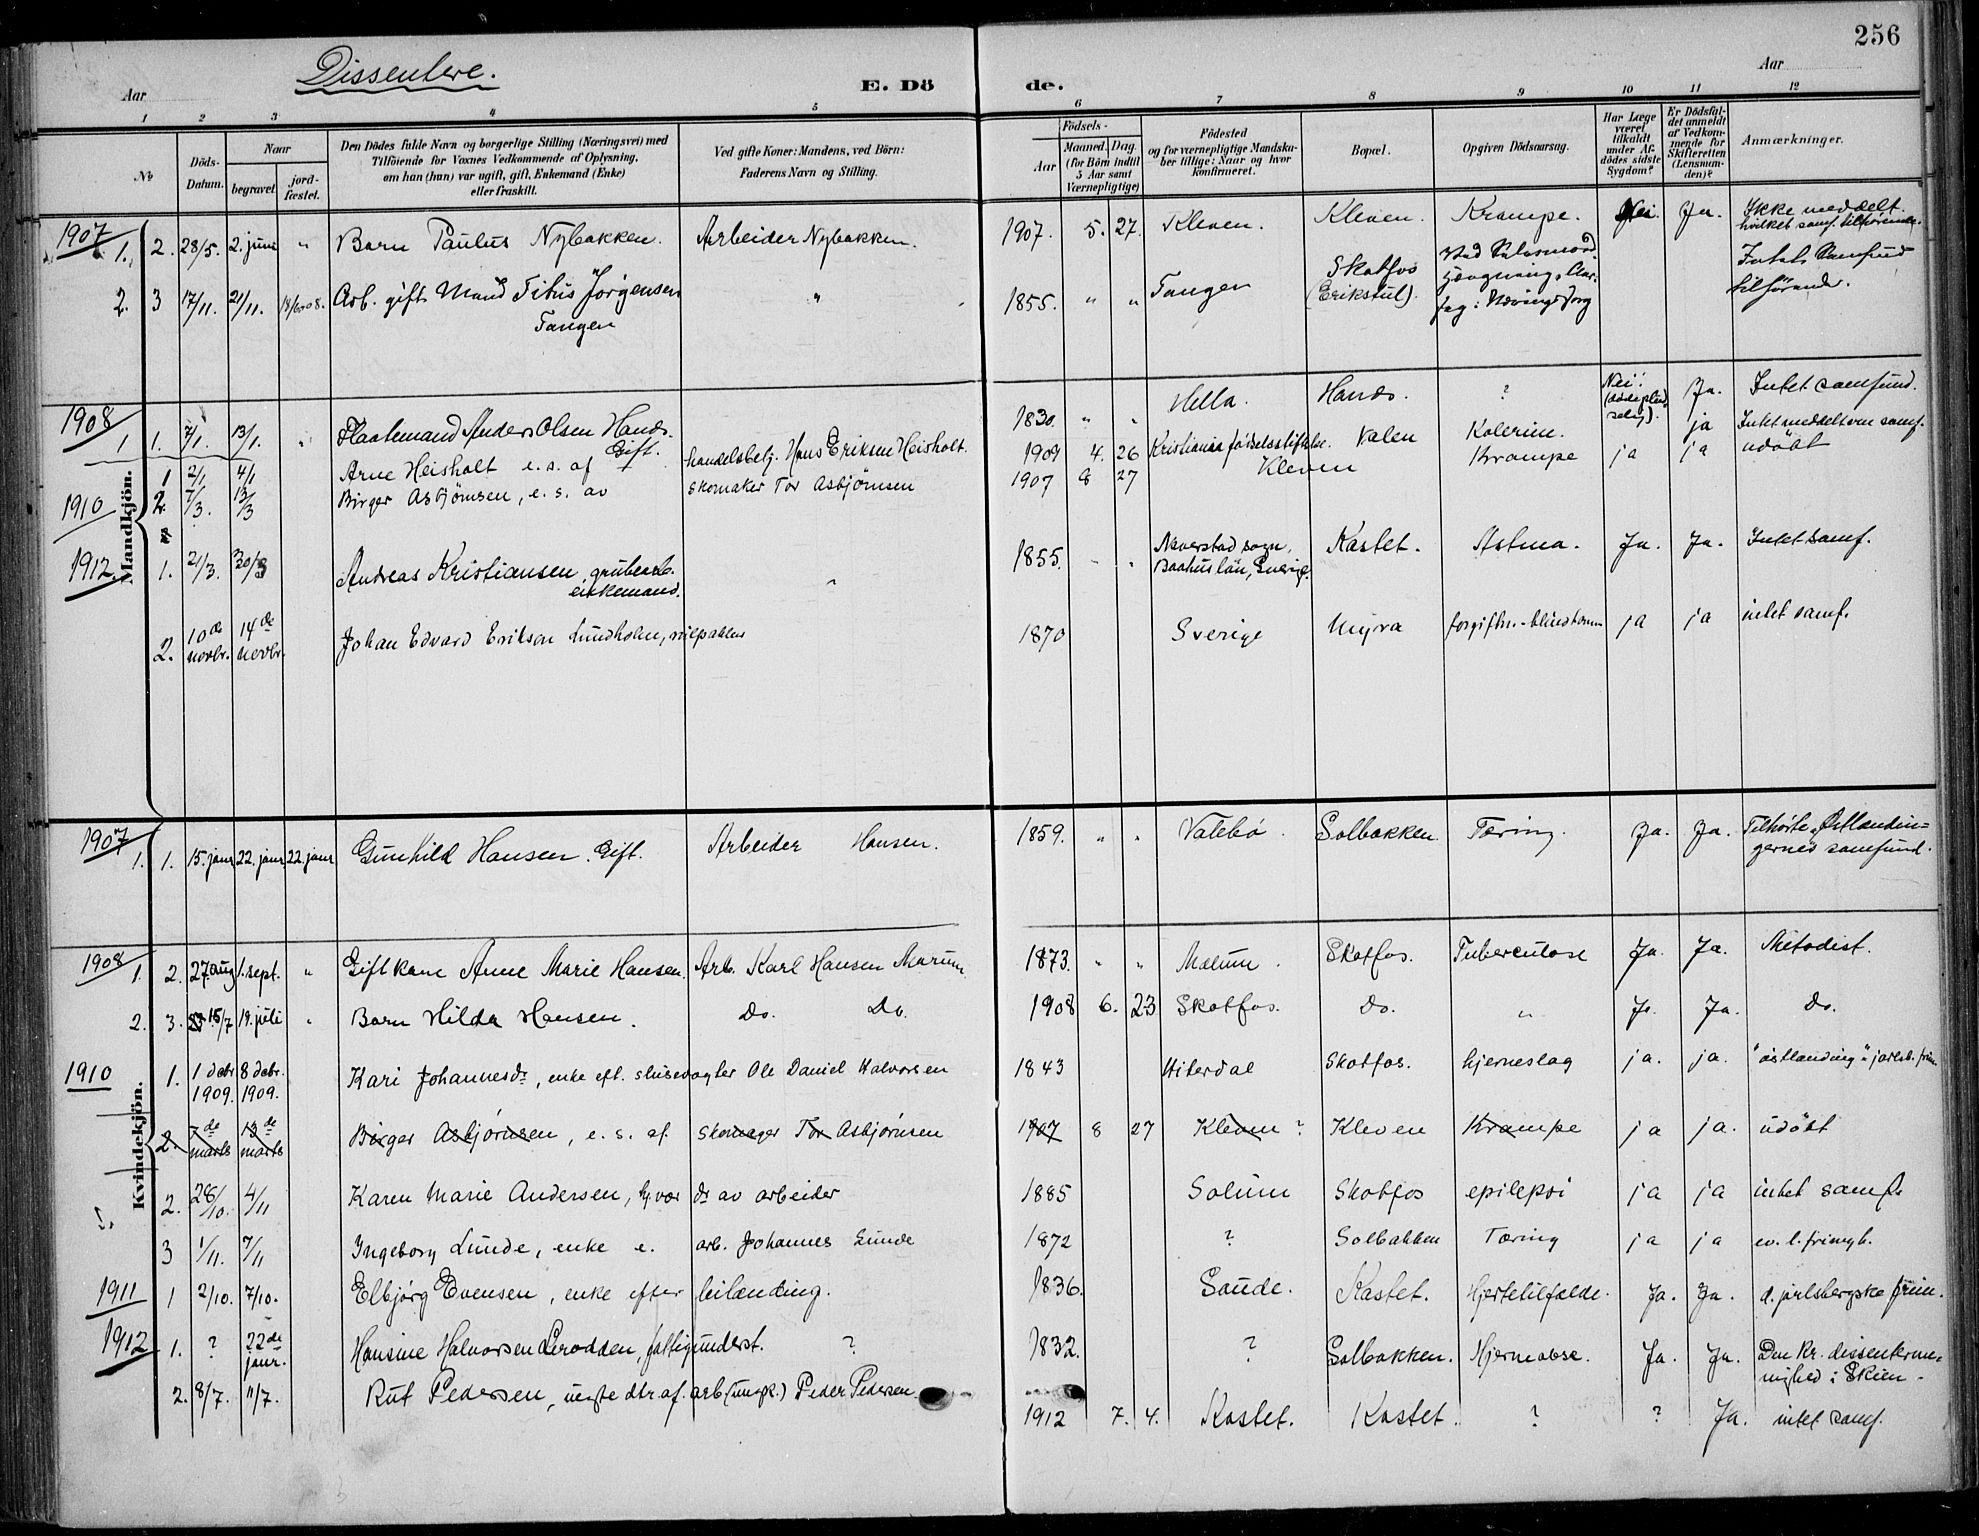 256
Dissentere.
Aar
E. Dö
de.
Aar
1 2 3 4 5 6 7 8 9 10 11 12
No
Döds-Datum.
Naar
begravet.
jord-fæstet.
Den Dödes fulde Navn og borgerlige Stilling (Næringsvei) med
Tilföiende for Voxnes Vedkommende af Oplysning,
om han (hun) var ugift, gift, Enkemand (Enke)
eller fraskilt.
Ved gifte Koner: Mandens, ved Börn:
Faderens Navn og Stilling.
Födsels-
Aar
Maaned. Dag.
(for Börn indtil
5 Aar samt
Værnepligtige)
Födested
og for værnepligtige Mandska-
ber tillige: Naar og hvor
Konfirmeret.
Bopæl.
Opgiven Dödsaarsag.
Har Læge
været
tilkaldt
under Af-
dödes sidste
Sygdom?
Er Dödsfal-
det anmeldt
af Vedkom-
mende for
Skifteretten
(Lensman-
den)?
Anmærkninger.
Mandkjön.
1907 1. 2. 28/5. 2. juni " Barn Paulus Nybakken. Arbeider Nybakken. 1907. 5. 27. Kleven. Kleven. Krampe. Nei. Ja. Ikke meddelt
hvilket samf. tilhørende.
2. 3 17/11. 21/11. Arb. gift Mand Titus Jörgensen
Tangen " 1855. " " Tangen Skotfos
(Erikstul). Intet Samfund
tilhörende.
1908 1 1. 7/1. 13/1. " Flaatemand Anders Olsen Hands.
Gift. 1830. " " Hella. Hands. ? Nei! Ja. Intet samfund.
1910 1 2/1 4/1 Arne Heisholt e. s. af handelsbetj. Hans Eriksen Heisholt. 1909 4. 26 Kristiania fødselsstiftelse. Valen Kolerine. ja ja Intet meddelt om samf.
2. 7/3. 13/3 Birger Asbjörnsen, e. s. av skomaker Tor Asbjörnsen 1907 8 27 Kleven Krampe ja udöbt
1912. 1. 21/3. 30/3 Andreas Kristiansen, grubearb.
enkemand. " 1855. " " Naverstad sogn,
Baahuslän, Sverige. Kastet. Astma. Ja. Ja. Intet samf.
2. 10de novbr. 14de novbr. Johan Edvard Erikson Lundholm, 1870 Sverige Myra ja ja intet samf.
Kvindekjön.
1907 1. 1. 15. janr 22. janr. 22. janr Gunhild Hansen. Gift. Arbeider Hansen. 1859. " " Valebö. Solbakken. Tæring. Ja. Ja. Tilhørte "Østlandin-
gernes samfund.
1908 1. 2. 27 aug 1. sept. " Gift kone Anne Marie Hansen. Arb. Karl Hansen Mærum 1873. " " Mælum. Skotfos. Tuberculose Ja. Ja. Metodist.
2. 3. 15/7 19. juli " Barn Hilda Hansen. Do. Do. 1908 6. 23 Skotfos. Do. " Ja. Ja. Do.
1910 1. 1 decbr 1909. 8 decbr. 1909. Kari Johannesdr, enke eft. slusevogter Ole Daniel Halvorsen 1843 Hiterdal Skotfos. hjerneslag ja. ja. "östlanding"
2. 7de marts 13de marts Birger Asbjörnsen, e. s. af. skomager Tor Asbjörnsen 1907 8 27 Kleven ? Kleven Krampe ja ja. udöbt
2. 28/10. 4/11 Karen Marie Andersen, dr av arbeider 1885 Solum Skotfos epilepsi ja ja intet samf.
3 1/11. 7/11 Ingeborg Lunde, enke e. arb. Johannes Lunde 1872 ? Solbakken Tæring ja ja ev. l. frimgh.
1911 1 2/10. 7/10. Elbjörg Evensen, enke efter leilænding. 1836. Saude. Kastet. Hjertetilfælde. Ja. Ja. d. jarlsbergske frim.
1912 1. ? 22de janr. Hansine Halvorsen Grodden, fattigunderst. ? 1832. ? Solbakken. Ja. Ja. Den kr. dissenterme-
nighed i Skien.
2. 8/7. 11/7. Rut Pedersen, uegte dtr. af. arb. (ungk.) Peder Pedersen 1912 7. 4. Kastet. Kastet. ? ? Ja. intet samf.